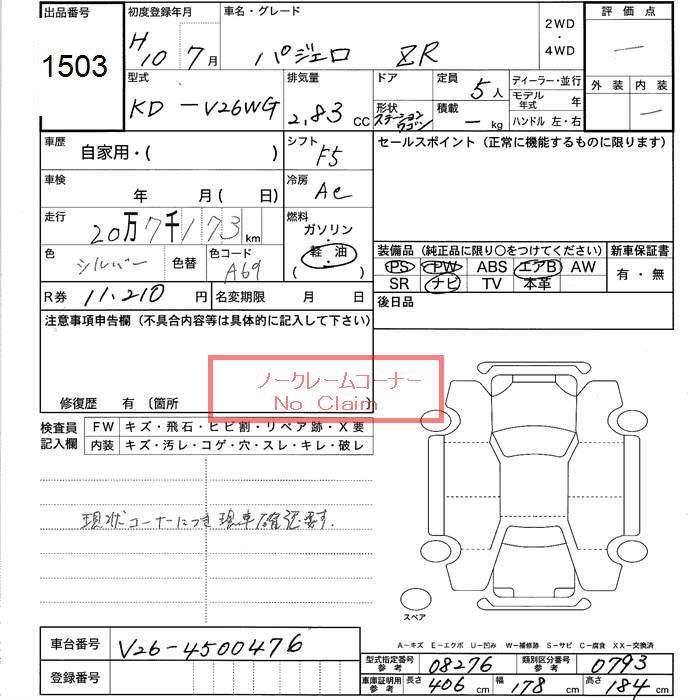 出品番号
1503
初度登録年月
H10 7月
車名・グレード
パジェロ ZR
2WD
・
4WD
評価点
—
型式
KD-V26WG
排気量
2,83 cc
ドア
定員
5人
形状
ステーションワゴン
積載
— kg
ディーラー・並行
モデル年式 年
ハンドル 左・右
外装
内装
—
車歴
自家用・( )
シフト
F5
セールスポイント (正常に機能するものに限ります)
車検
年 月( 日)
冷房
AC
走行
20万7千173km
燃料
ガソリン・
軽・油
( )
色
シルバー
色替
色コード
A69
装備品 (純正品に限り○をつけてください)
PS PW ABS エアB AW
SR ナビ TV 本革
新車保証書
有・無
R券 11,210 円
名変期限 月 日
後日品
注意事項申告欄 (不具合内容等は具体的に記入して下さい)
ノークレームコーナー
No Claim
修復歴 有 〔箇所 〕
検査員記入欄
FW キズ・飛石・ヒビ割・リペア跡・X要
内装 キズ・汚レ・コゲ・穴・スレ・キレ・破レ
現状コーナーにつき現車確認要す.
スペア
A-キズ E-エクボ U-凹み W-補修跡 S-サビ C-腐食 XX-交換済
車台番号 V26-4500476
登録番号
型式指定番号 参考 08276
類別区分番号 参考 0793
車庫証明用 参考 長さ 406cm 幅 178cm 高さ 184cm